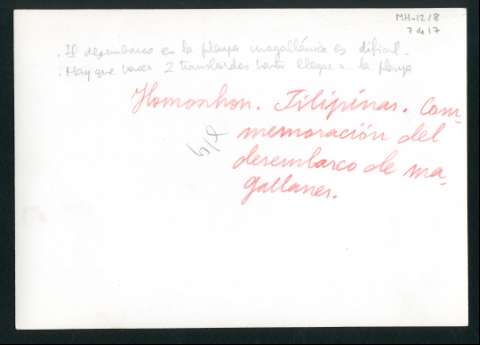 MH-1218
7 de 17
. El desembarco en la playa magallánica es difícil.
. Hay que hacer 2 transbordos hasta llegar a la playa
Homonhon. Filipinas. Con-
memoración del
desembarco de ma-
gallanes.